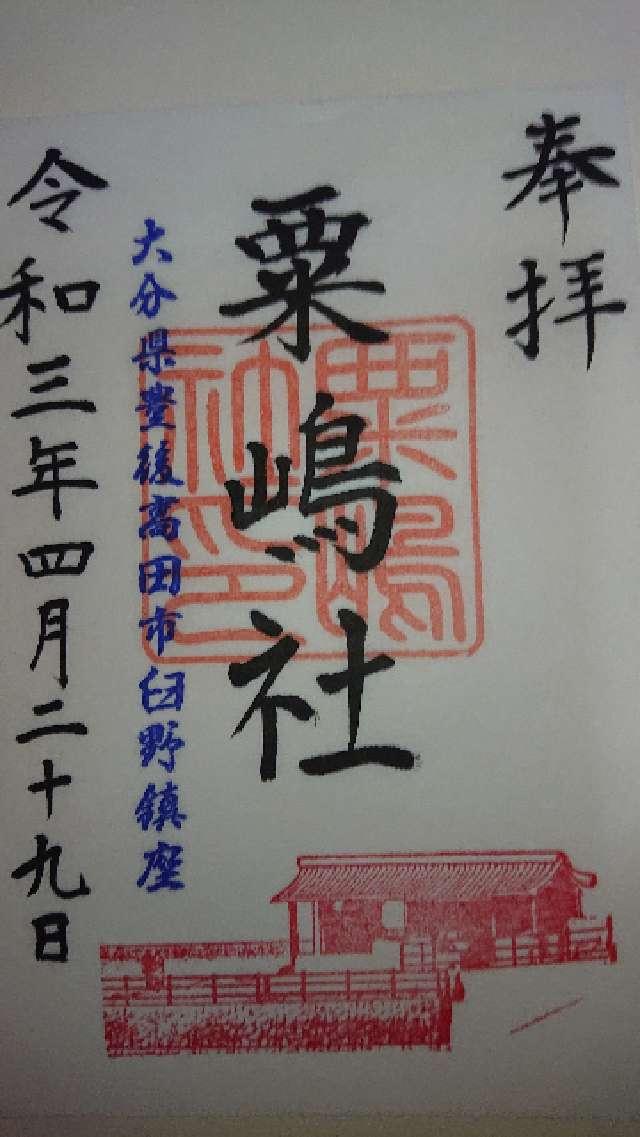 奉拝
粟嶋社
粟嶋社印
大分県豊後高田市臼野鎮座
令和三年四月二十九日